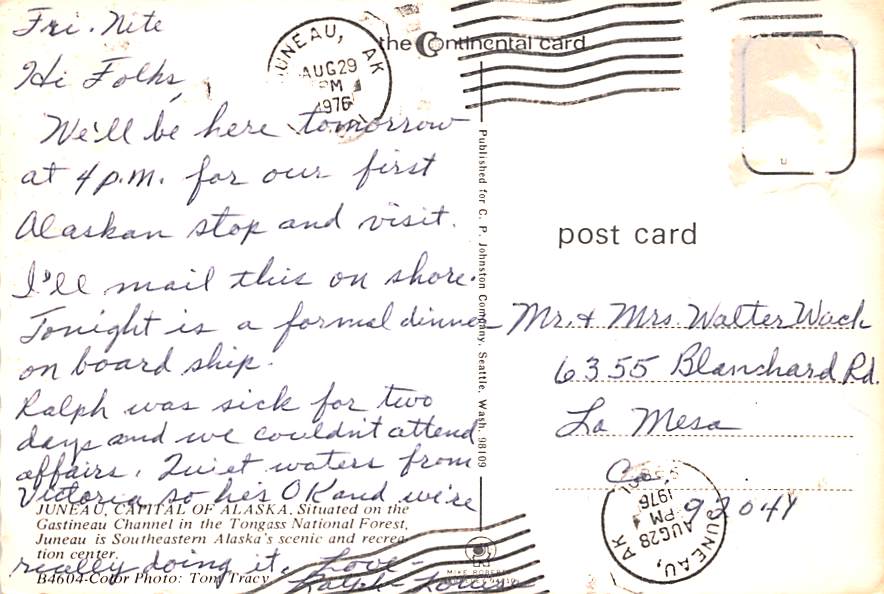 Fri. Nite
Hi Folks,
We'll be here tomorrow
at 4 p.m. for our first
Alaskan stop and visit.
I'll mail this on shore.
Tonight is a formal dinner
on board ship.
Ralph was sick for two
days and we couldn't attend
affairs. Quiet waters from
Victoria so he's OK and we're
really doing it. Love-
Ralph - Louise
JUNEAU, CAPITAL OF ALASKA. Situated on the
Gastineau Channel in the Tongass National Forest,
Juneau is Southeastern Alaska's scenic and recrea-
tion center.
B4604-Color Photo: Tom Tracy
JUNEAU, AK
AUG29
PM
1976
the Continental card
Published for C. P. Johnston Company, Seattle, Wash. 98109
MIKE ROBERTS
post card
Mr. & Mrs Walter Wach
6355 Blanchard Rd.
La Mesa
Ca.
92041
JUNEAU, AK
AUG28
PM
1976